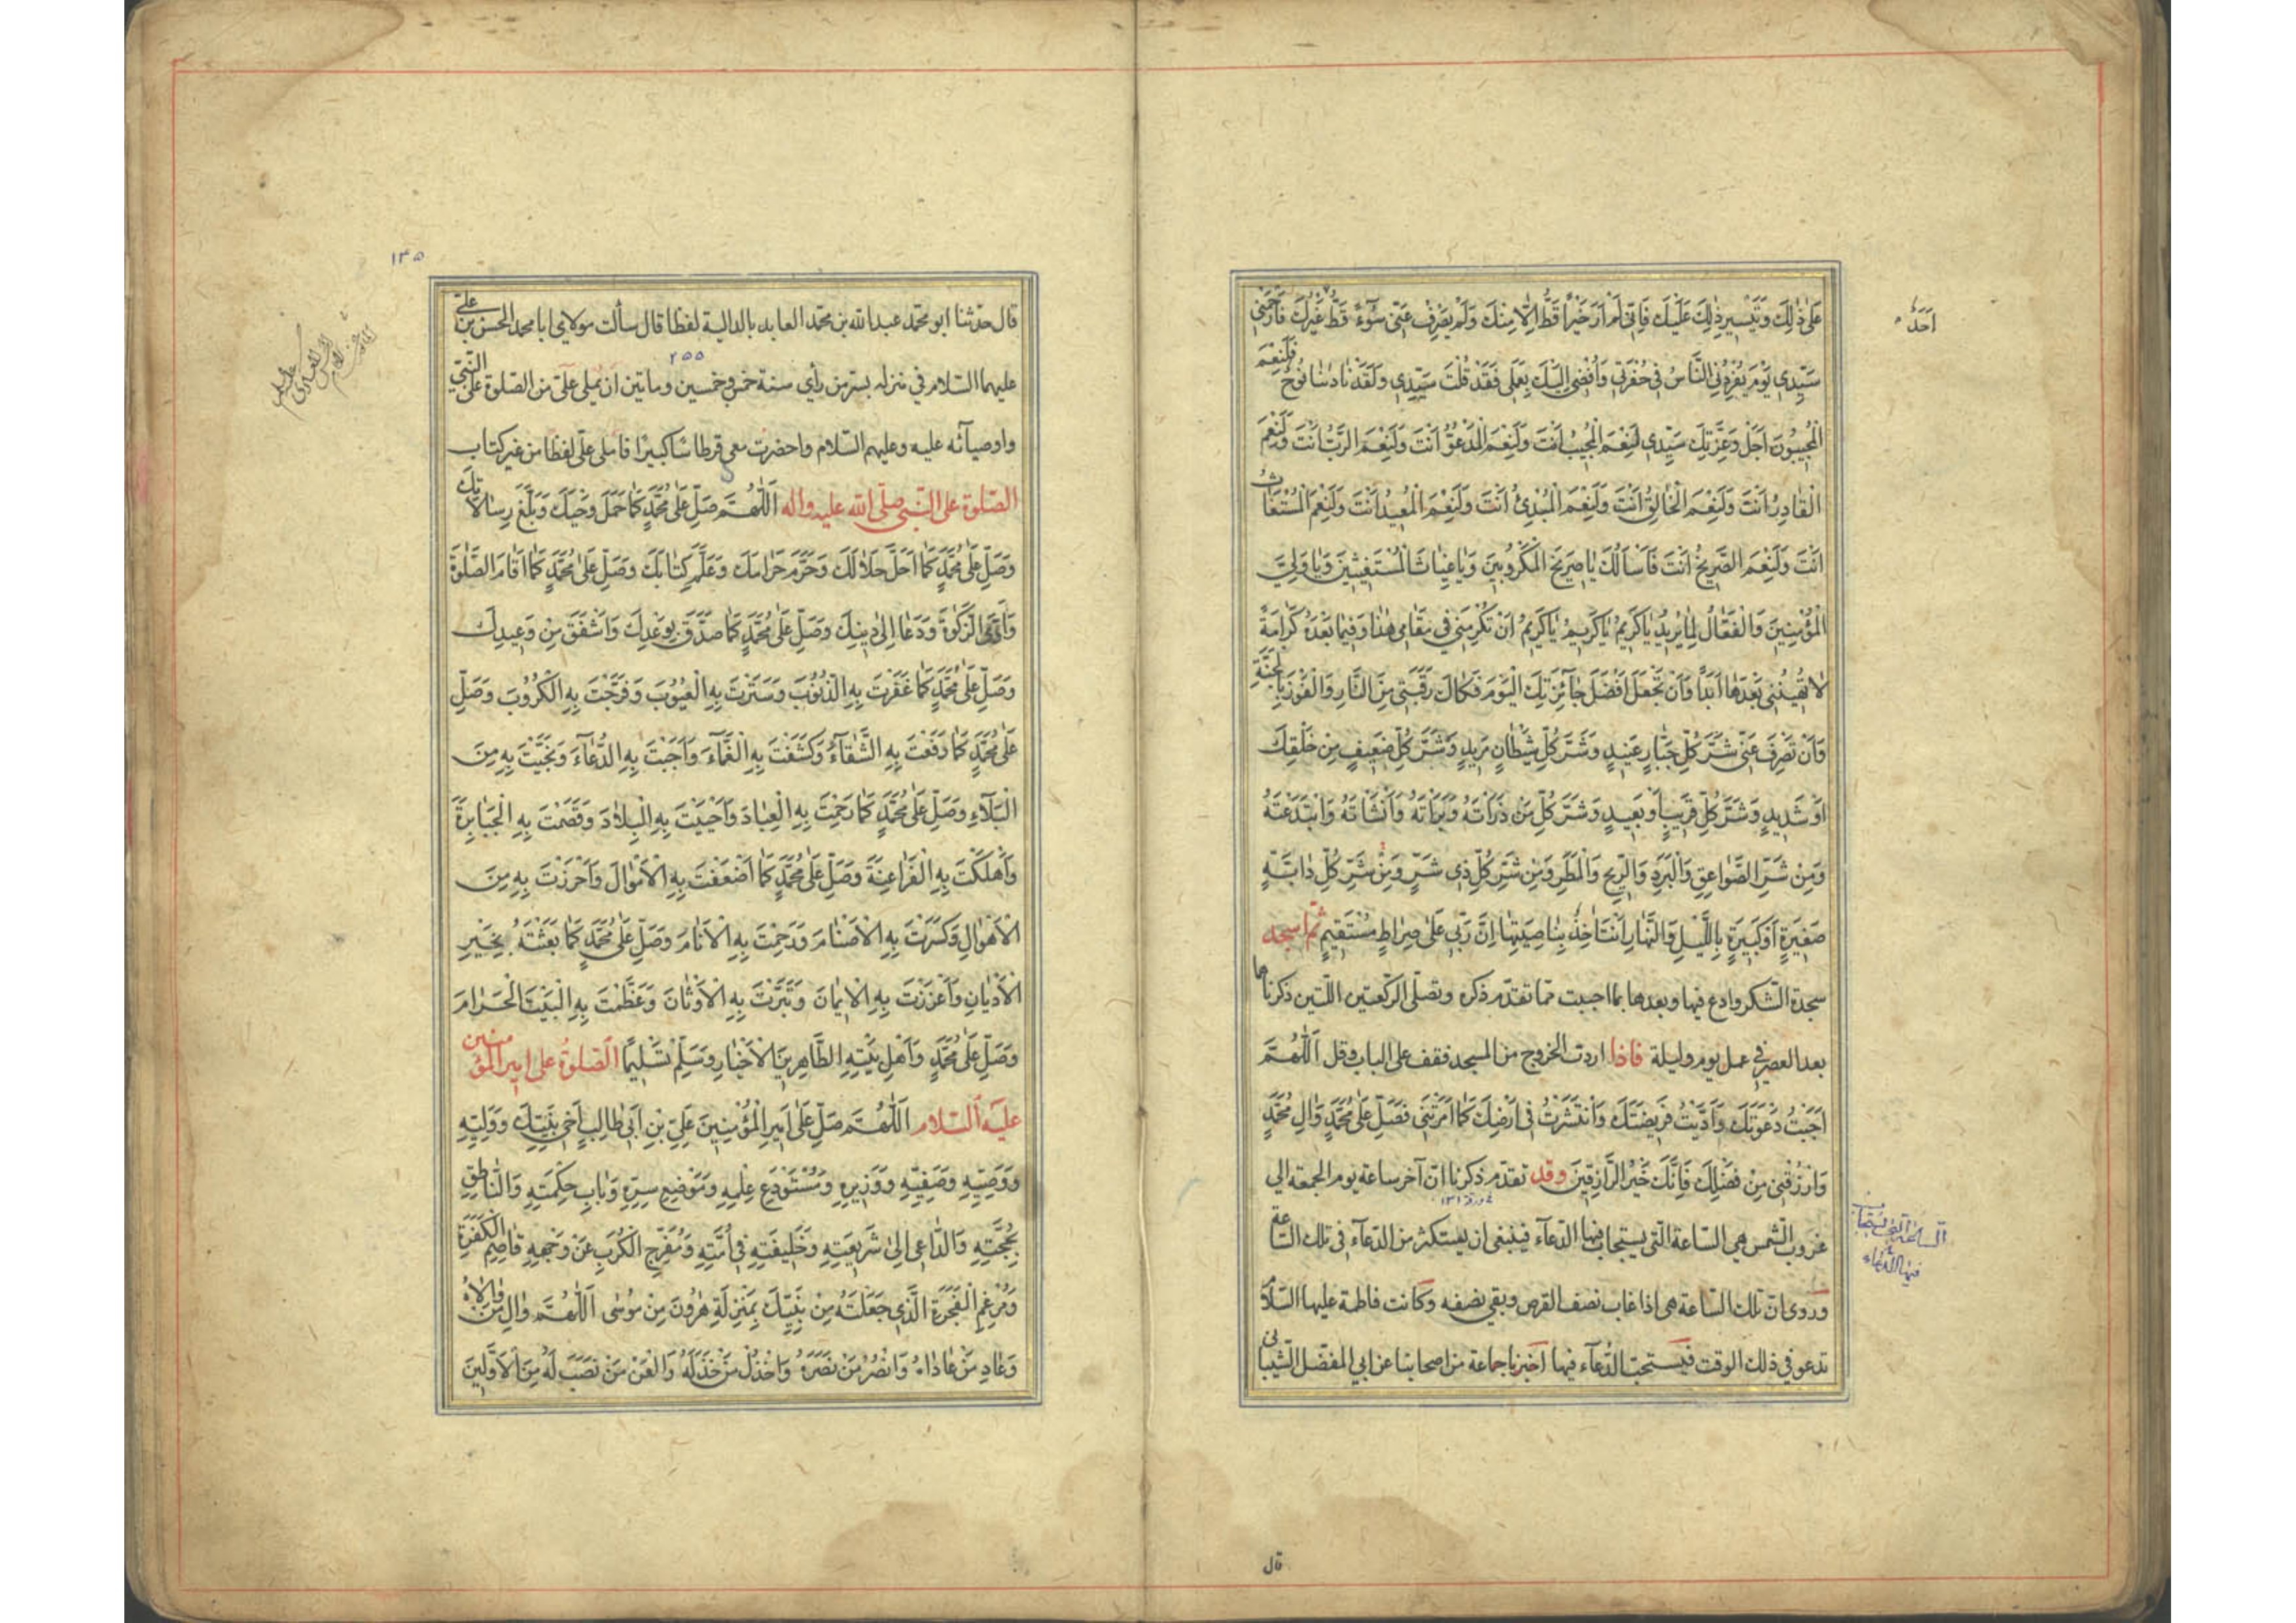 عَلىٰ ذٰلِكَ وَتَيْسِيرِ ذٰلِكَ عَلَيْكَ فَاِنّي لَمْ اَرَ خَيْراً قَطُّ اِلّا مِنْكَ وَلَمْ يَصْرِفْ عَنّي سُوءً قَطُّ غَيْرُكَ فَارْحَمْني
اَحَدٌ
سَيِّدي يَوْمَ يُفْرِدُنِي النَّاسُ في حُفْرَتي وَاُفْضي اِلَيْكَ بِعَمَلي فَقَدْ قُلْتَ سَيِّدي وَلَقَدْ نٰادٰينٰا نُوحٌ فَلَنِعْمَ
الْمُجيبُونَ اَجَلْ وَعِزَّتِكَ سَيِّدي لَنِعْمَ الْمُجيبُ اَنْتَ وَلَنِعْمَ الْمَدْعُوُّ اَنْتَ وَلَنِعْمَ الرَّبُّ اَنْتَ وَلَنِعْمَ
الْقٰادِرُ اَنْتَ وَلَنِعْمَ الْخٰالِقُ اَنْتَ وَلَنِعْمَ الْمُبْدِئُ اَنْتَ وَلَنِعْمَ الْمُعيدُ اَنْتَ وَلَنِعْمَ الْمُسْتَغٰاثُ
اَنْتَ وَلَنِعْمَ الصَّريخُ اَنْتَ فَاَسْاَلُكَ يٰا صَريخَ الْمَكْرُوبينَ وَيٰا غِيٰاثَ الْمُسْتَغيثينَ وَيٰا وَلِيَّ
الْمُؤْمِنينَ وَالْفَعّٰالُ لِمٰا يُريدُ يٰا كَريمُ يٰا كَريمُ يٰا كَريمُ اَنْ تُكْرِمَني في مَقٰامي هٰذٰا وَفيمٰا بَعْدَهُ كَرٰامَةً
لٰا تُهينُني بَعْدَهٰا اَبَداً وَاَنْ تَجْعَلَ اَفْضَلَ جٰائِزَتِكَ الْيَوْمَ فَكٰاكَ رَقَبَتي مِنَ النّٰارِ وَالْفَوْزَ بِالْجَنَّةِ
وَاَنْ تَصْرِفَ عَنّي شَرَّ كُلِّ جَبّٰارٍ عَنيدٍ وَشَرَّ كُلِّ شَيْطٰانٍ مَريدٍ وَشَرَّ كُلِّ ضَعيفٍ مِنْ خَلْقِكَ
اَوْ شَديدٍ وَشَرَّ كُلِّ قَريبٍ اَوْ بَعيدٍ وَشَرَّ كُلِّ مَنْ ذَرَأْتَهُ وَبَرَأْتَهُ وَاَنْشَأْتَهُ وَابْتَدَعْتَهُ
وَمِنْ شَرِّ الصَّوٰاعِقِ وَالْبَرَدِ وَالرّيحِ وَالْمَطَرِ وَمِنْ شَرِّ كُلِّ ذي شَرٍّ وَمِنْ شَرِّ كُلِّ دٰابَّةٍ
صَغيرَةٍ اَوْ كَبيرَةٍ بِاللَّيْلِ وَالنَّهٰارِ اَنْتَ اٰخِذٌ بِنٰاصِيَتِهٰا اِنَّ رَبّي عَلىٰ صِرٰاطٍ مُسْتَقيمٍ ثم اسجد
سجدة الشكر وادع فيها وبعدها بما احببت مما تقدم ذكره وتصلى الركعتين اللتين ذكرناهما
بعد العصر في عمل يوم وليلة فاذا اردت الخروج من المسجد فقف على الباب وقل اَللّٰهُمَّ
اَجَبْتُ دَعْوَتَكَ وَاَدَّيْتُ فَريضَتَكَ وَانْتَشَرْتُ في اَرْضِكَ كَمٰا اَمَرْتَني فَصَلِّ عَلىٰ مُحَمَّدٍ وَاٰلِ مُحَمَّدٍ
وَارْزُقْني مِنْ فَضْلِكَ فَاِنَّكَ خَيْرُ الرّٰازِقينَ وقد تقدم ذكرنا ان آخر ساعة يوم الجمعة الى
غروب الشمس هي الساعة التى يستجاب فيها الدعاء فينبغى ان يستكثر من الدعاء فى تلك الساعة
الساعة التى يستجاب
فيها الدعاء
وروى ان تلك الساعة هى اذا غاب نصف القرص وبقى نصفه وكانت فاطمة عليها السلام
تدعو في ذلك الوقت فيستحب الدعاء فيها اخبرنا جماعة من اصحابنا عن ابي المفضل الشيبانى
قال
١٣٥
قال حدثنا ابو محمد عبد الله بن محمد العابد بالدالية لفظا قال سألت مولاي ابا محمد الحسن بن على
٢٥٥
عليهما السلام في منزله بسر من رأي سنة خمس وخمسين وماتين ان يملى على من الصلوة على النبي
واوصيائه عليه وعليهم السلام واحضرت معى قرطاسا كبيرا فاملى على لفظا من غير كتاب
الصلوة على النبى صلى الله عليه واله اَللّٰهُمَّ صَلِّ عَلىٰ مُحَمَّدٍ كَمٰا حَمَلَ وَحْيَكَ وَبَلَّغَ رِسٰالاتِكَ
وَصَلِّ عَلىٰ مُحَمَّدٍ كَمٰا اَحَلَّ حَلٰالَكَ وَحَرَّمَ حَرٰامَكَ وَعَلَّمَ كِتٰابَكَ وَصَلِّ عَلىٰ مُحَمَّدٍ كَمٰا اَقٰامَ الصَّلٰوةَ
وَاَدَّى الزَّكٰوةَ وَدَعٰا اِلىٰ دينِكَ وَصَلِّ عَلىٰ مُحَمَّدٍ كَمٰا صَدَّقَ بِوَعْدِكَ وَاَشْفَقَ مِنْ وَعيدِكَ
وَصَلِّ عَلىٰ مُحَمَّدٍ كَمٰا غَفَرْتَ بِهِ الذُّنُوبَ وَسَتَرْتَ بِهِ الْعُيُوبَ وَفَرَّجْتَ بِهِ الْكُرُوبَ وَصَلِّ
عَلىٰ مُحَمَّدٍ كَمٰا دَفَعْتَ بِهِ الشَّقٰاءَ وَكَشَفْتَ بِهِ الْغَمّٰاءَ وَاَجَبْتَ بِهِ الدُّعٰاءَ وَنَجَّيْتَ بِهِ مِنَ
الْبَلٰاءِ وَصَلِّ عَلىٰ مُحَمَّدٍ كَمٰا رَحِمْتَ بِهِ الْعِبٰادَ وَاَحْيَيْتَ بِهِ الْبِلٰادَ وَقَصَمْتَ بِهِ الْجَبٰابِرَةَ
وَاَهْلَكْتَ بِهِ الْفَرٰاعِنَةَ وَصَلِّ عَلىٰ مُحَمَّدٍ كَمٰا اَضْعَفْتَ بِهِ الْاَمْوٰالَ وَاَحْرَزْتَ بِهِ مِنَ
الْاَهْوٰالِ وَكَسَرْتَ بِهِ الْاَصْنٰامَ وَرَحِمْتَ بِهِ الْاَنٰامَ وَصَلِّ عَلىٰ مُحَمَّدٍ كَمٰا بَعَثْتَهُ بِخَيْرِ
الْاَدْيٰانِ وَاَعْزَزْتَ بِهِ الْايمٰانَ وَتَبَّرْتَ بِهِ الْاَوْثٰانَ وَعَظَّمْتَ بِهِ الْبَيْتَ الْحَرٰامَ
وَصَلِّ عَلىٰ مُحَمَّدٍ وَاَهْلِ بَيْتِهِ الطّٰاهِرينَ الْاَخْيٰارِ وَسَلِّمْ تَسْليمًا الصلوة على امير المؤمنين
عليه السلام اَللّٰهُمَّ صَلِّ عَلىٰ اَميرِ الْمُؤْمِنينَ عَلِيِّ بْنِ اَبي طٰالِبٍ اَخي نَبِيِّكَ وَوَلِيِّهِ
وَوَصِيِّهِ وَصَفِيِّهِ وَوَزيرِهِ وَمُسْتَوْدَعِ عِلْمِهِ وَمَوْضِعِ سِرِّهِ وَبٰابِ حِكْمَتِهِ وَالنّٰاطِقِ
بِحُجَّتِهِ وَالدّٰاعي اِلىٰ شَريعَتِهِ وَخَليفَتِهِ في اُمَّتِهِ وَمُفَرِّجِ الْكُرَبِ عَنْ وَجْهِهِ قٰاصِمِ الْكَفَرَةِ
وَمُرْغِمِ الْفَجَرَةِ الَّذي جَعَلْتَهُ مِنْ نَبِيِّكَ بِمَنْزِلَةِ هٰرُونَ مِنْ مُوسىٰ اَللّٰهُمَّ وٰالِ مَنْ وٰالٰاهُ
وَعٰادِ مَنْ عٰادٰاهُ وَانْصُرْ مَنْ نَصَرَهُ وَاخْذُلْ مَنْ خَذَلَهُ وَالْعَنْ مَنْ نَصَبَ لَهُ مِنَ الْاَوَّلينَ